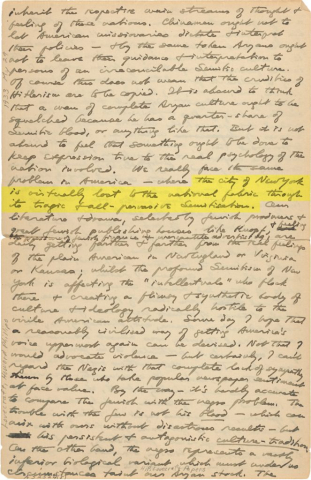 inherit the respective main streams of thought &
feeling of these nations. Chinamen ought not to
let American missionaries dictate & interpret
their policies — & by the same token Aryans ought
not to leave their guidance & interpretation to
persons of an irreconcilable Semitic culture.
Of course this does not mean that the crudities of
Hitlerism are to be copied. It is absurd to think
that a man of complete Aryan culture ought to be
squelched because he has a quarter-share of
Semitic blood, or anything like that. But it is not
absurd to feel that something ought to be done to
keep expression true to the real psychology of the
nation involved. We really face the same
problem in America — where the city of New York
is virtually lost to the national fabric through
its tragic & all-pervasive Semitisation. Our
literature & drama, selected by Jewish producers &
great Jewish publishing houses like Knopf, & feeling
the pressure of Jewish finance & mercantile advertising, are
daily getting farther & farther from the real feelings
of the plain American in New England or Virginia
or Kansas; whilst the profound Semitism of New
York is affecting the "intellectuals" who flock
there & creating a flimsy & synthetic body of
culture & ideology radically hostile to the
virile American attitude. Some day I hope that
a reasonably civilised way of getting America's
voice uppermost again can be devised. Not that I
would advocate violence — but certainly, I can't
regard the Nazis with that complete lack of sympathy
shewn by those who take popular newspaper sentiment
at face value. By the way — it's hardly accurate
to compare the Jewish with the negro problem. The
trouble with the Jew is not his blood — which can
mix with ours without disastrous results — but
his persistent & antagonistic culture-tradition.
On the other hand, the negro represents a vastly
inferior biological variant which must under no
circumstances taint our Aryan stock. The